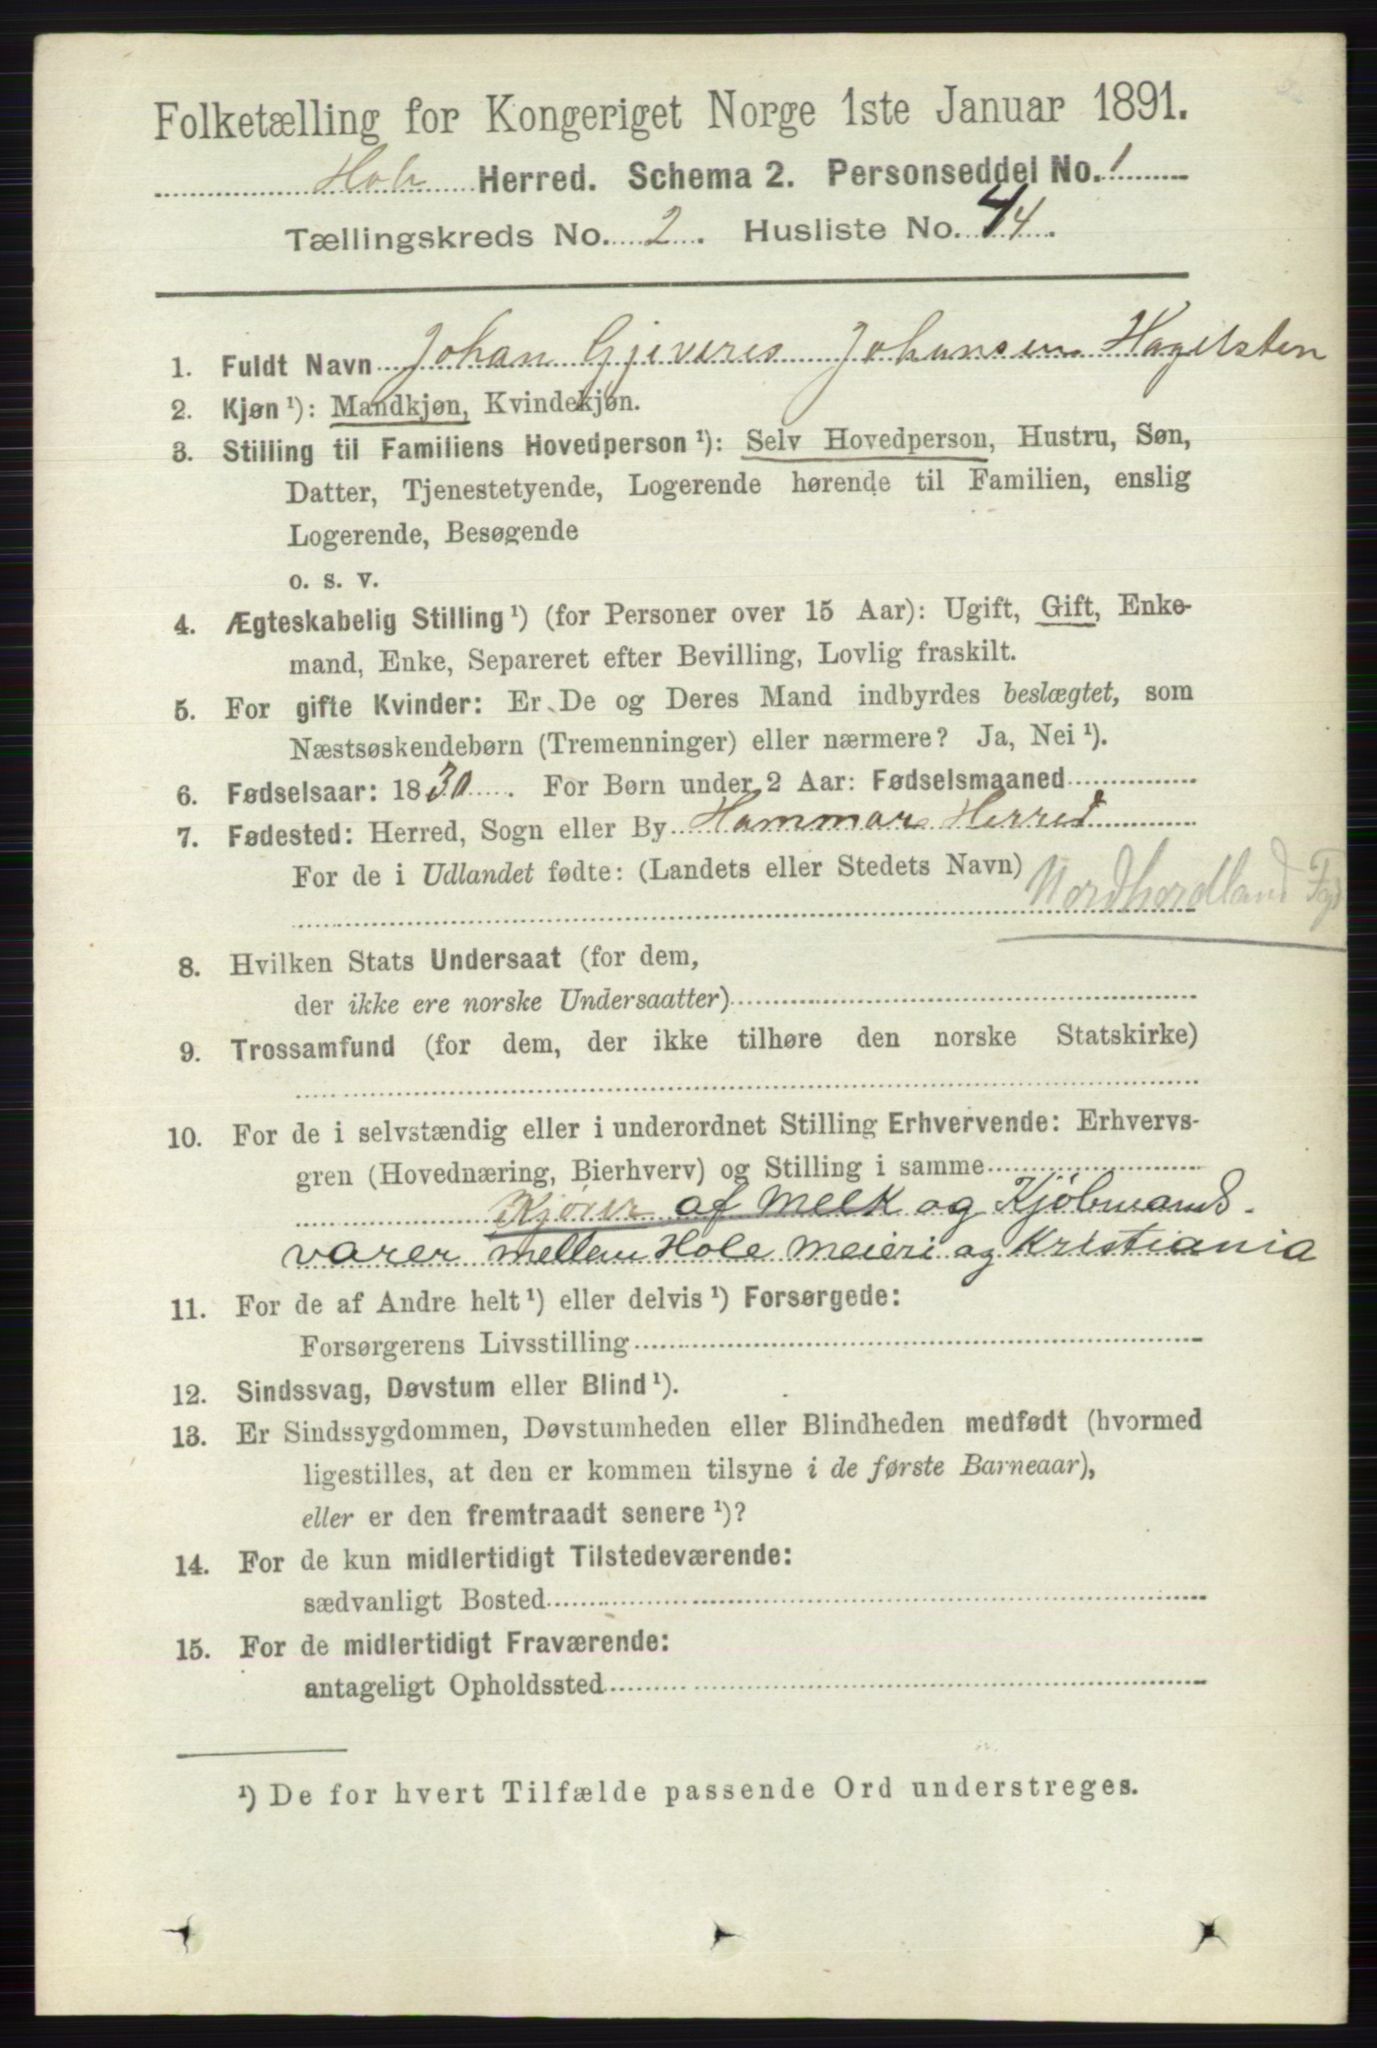 Folketælling for Kongeriget Norge 1ste Januar 1891.
Hole Herred. Schema 2. Personseddel No. 1
Tællingskreds No. 2. Husliste No. 44.
1. Fuldt Navn Johan Gjeveris Johansen Hagelsten
2. Kjøn ¹): Mandkjøn, Kvindekjøn.
3. Stilling til Familiens Hovedperson ¹): Selv Hovedperson, Hustru, Søn,
Datter, Tjenestetyende, Logerende hørende til Familien, enslig
Logerende, Besøgende
o. s. v.
4. Ægteskabelig Stilling ¹) (for Personer over 15 Aar): Ugift, Gift, Enke-
mand, Enke, Separeret efter Bevilling, Lovlig fraskilt.
5. For gifte Kvinder: Er De og Deres Mand indbyrdes beslægtet, som
Næstsøskendebørn (Tremenninger) eller nærmere? Ja, Nei ¹).
6. Fødselsaar: 1830. For Børn under 2 Aar: Fødselsmaaned
7. Fødested: Herred, Sogn eller By Hammars Herred
For de i Udlandet fødte: (Landets eller Stedets Navn)
Nordhordland
8. Hvilken Stats Undersaat (for dem,
der ikke ere norske Undersaatter)
9. Trossamfund (for dem, der ikke tilhøre den norske Statskirke)
10. For de i selvstændig eller i underordnet Stilling Erhvervende: Erhvervs-
gren (Hovednæring, Bierhverv) og Stilling i samme
Kjører af Melk og Kjöbmands-
varer mellem Hole Meieri og Kristiania
11. For de af Andre helt ¹) eller delvis ¹) Forsørgede:
Forsørgerens Livsstilling
12. Sindssvag, Døvstum eller Blind ¹).
13. Er Sindssygdommen, Døvstumheden eller Blindheden medfødt (hvormed
ligestilles, at den er kommen tilsyne i de første Barneaar),
eller er den fremtraadt senere ¹)?
14. For de kun midlertidigt Tilstedeværende:
sædvanligt Bosted
15. For de midlertidigt Fraværende:
antageligt Opholdssted
¹) De for hvert Tilfælde passende Ord understreges.